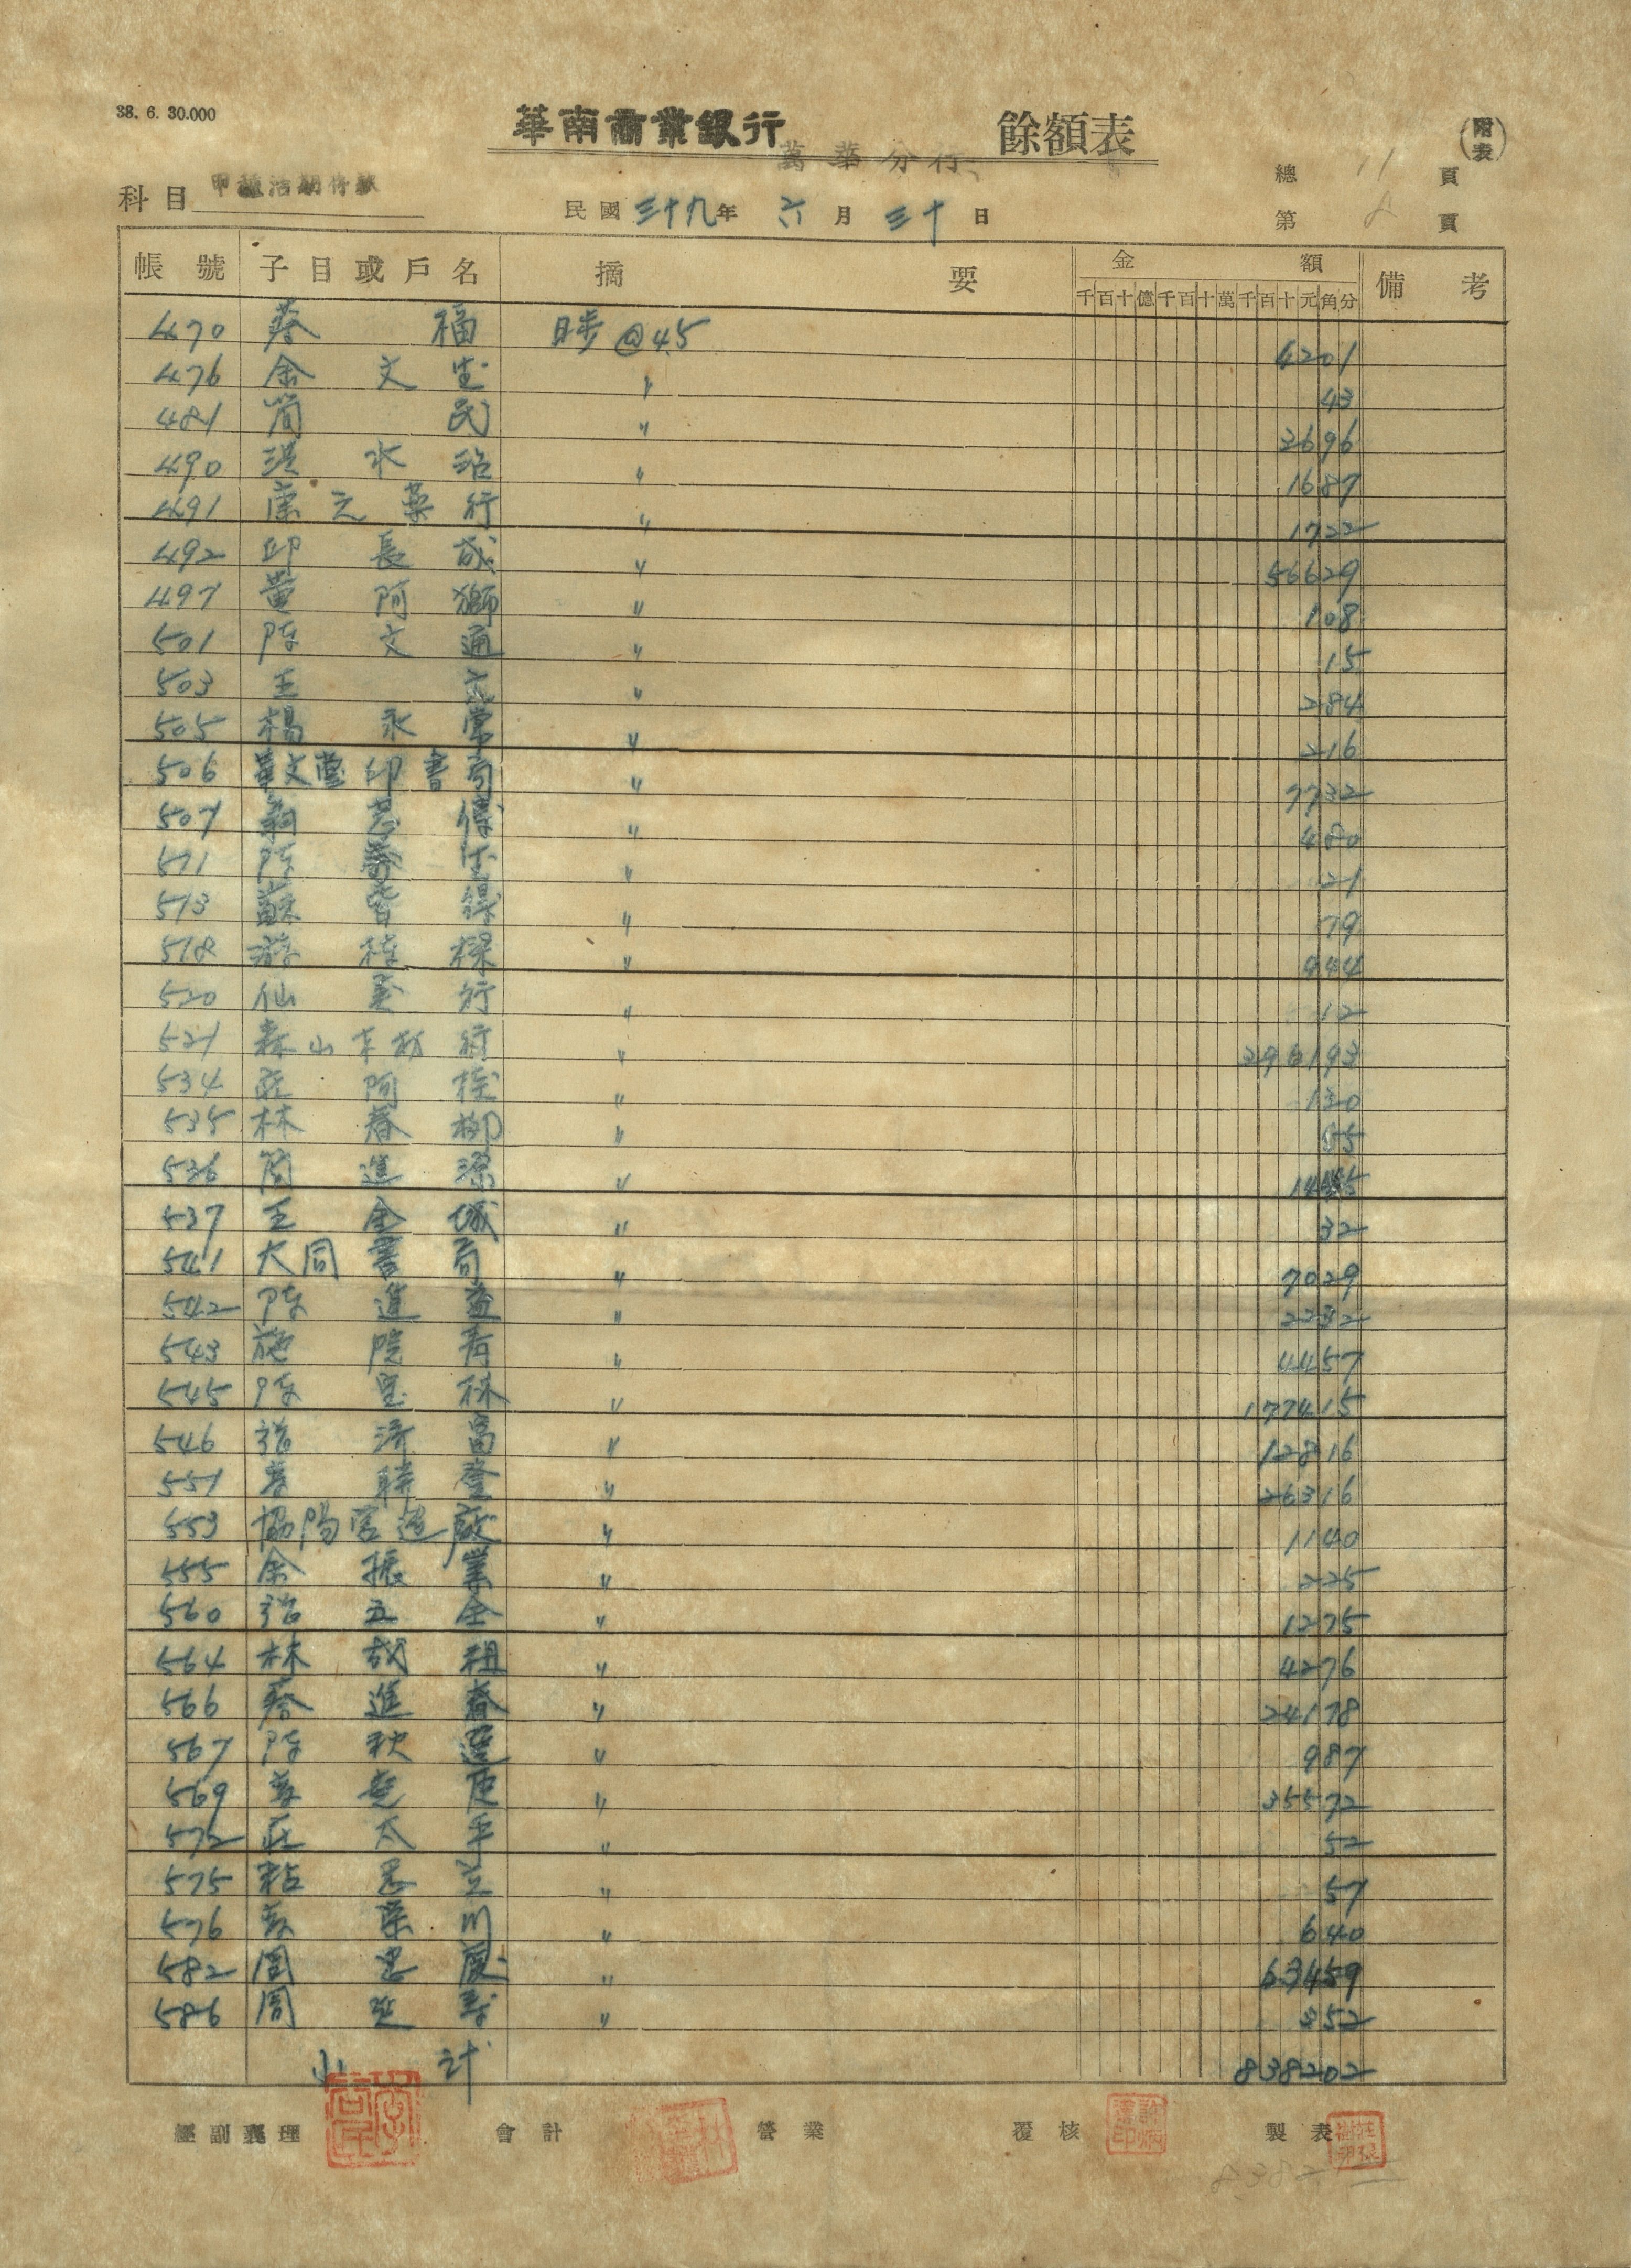 38. 6. 30.000
華南商業銀行 萬華分行 餘額表 (附表)
總 11 頁
科目 甲種活期存款 民國三十九年 六月 三十日 第 8 頁
帳號 子目或戶名 摘要 金額 備考
千百十億千百十萬千百十元角分
470 蔡福 日步@4.5 4201
476 余文生 〃 43
481 簡民 〃 3696
490 洪水治 〃 1687
491 廣元藥行 〃 1722
492 邱長成 〃 56629
497 黃阿獅 〃 108
501 陳文通 〃 15
503 王 〃 284
505 楊永常 〃 216
506 華文堂印書局 〃 7732
507 〃 480
511 陳 〃 21
513 蘇皆得 〃 79
518 游 樑 〃 944
520 仙 行 〃 12
521 森山木材行 〃 396193
534 莊阿 〃 130
535 林春柳 〃 55
536 簡進源 〃
537 王金城 〃 32
541 大同書局 〃 7029
542 陳進益 〃 2332
543 施院青 〃 4457
545 陳 林 〃 177415
546 富 〃 12816
551 登 〃 26316
553 協陽客運 〃 1140
555 余振業 〃 225
560 五全 〃 1275
564 林 祖 〃 4276
566 蔡進春 〃 24178
567 陳秋 〃 987
569 〃 35572
572 莊太平 〃 52
575 粘 立 〃 57
576 榮川 〃 640
582 周 慶 〃 63459
586 周 〃 352
小計 838202
經副襄理 會計 營業 覆核 製表